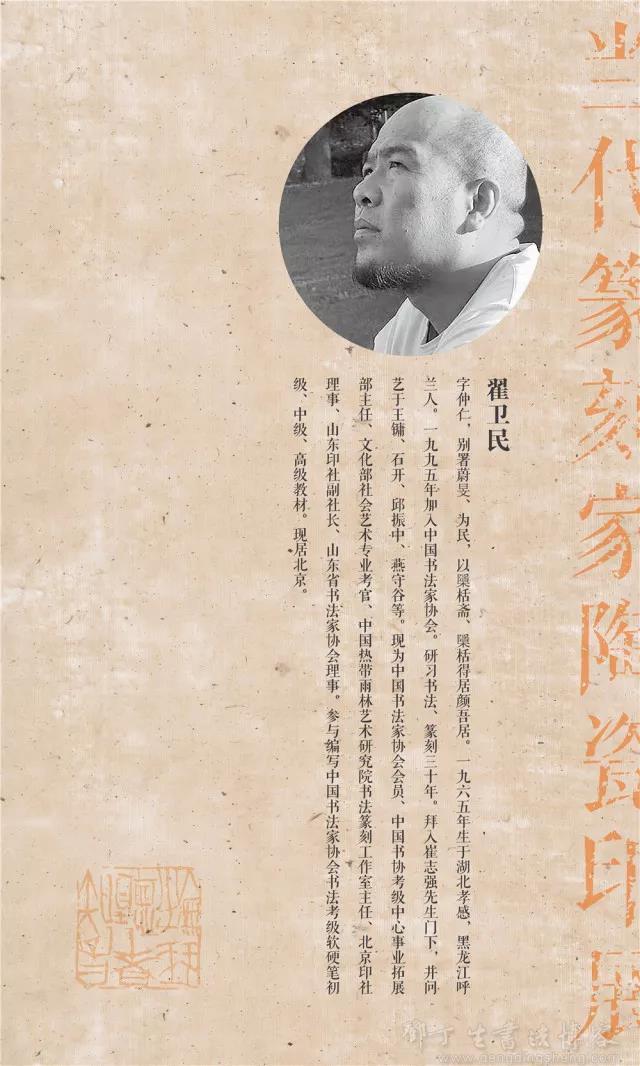 当代篆刻家陶瓷印展
翟卫民
字仲仁，别署蔚旻、为民，以檃栝斋、檃栝得居颜吾居。一九六五年生于湖北孝感，黑龙江呼
兰人。一九九五年加入中国书法家协会。研习书法、篆刻三十年。拜入崔志强先生门下，并问
艺于王镛、石开、邱振中、燕守谷等。现为中国书法家协会会员、中国书协考级中心事业拓展
部主任、文化部社会艺术专业考官、中国热带雨林艺术研究院书法篆刻工作室主任、北京印社
理事、山东印社副社长、山东省书法家协会理事。参与编写中国书法家协会书法考级软硬笔初
级、中级、高级教材。现居北京。
邓丁生书法博客
www.dengdingsheng.com